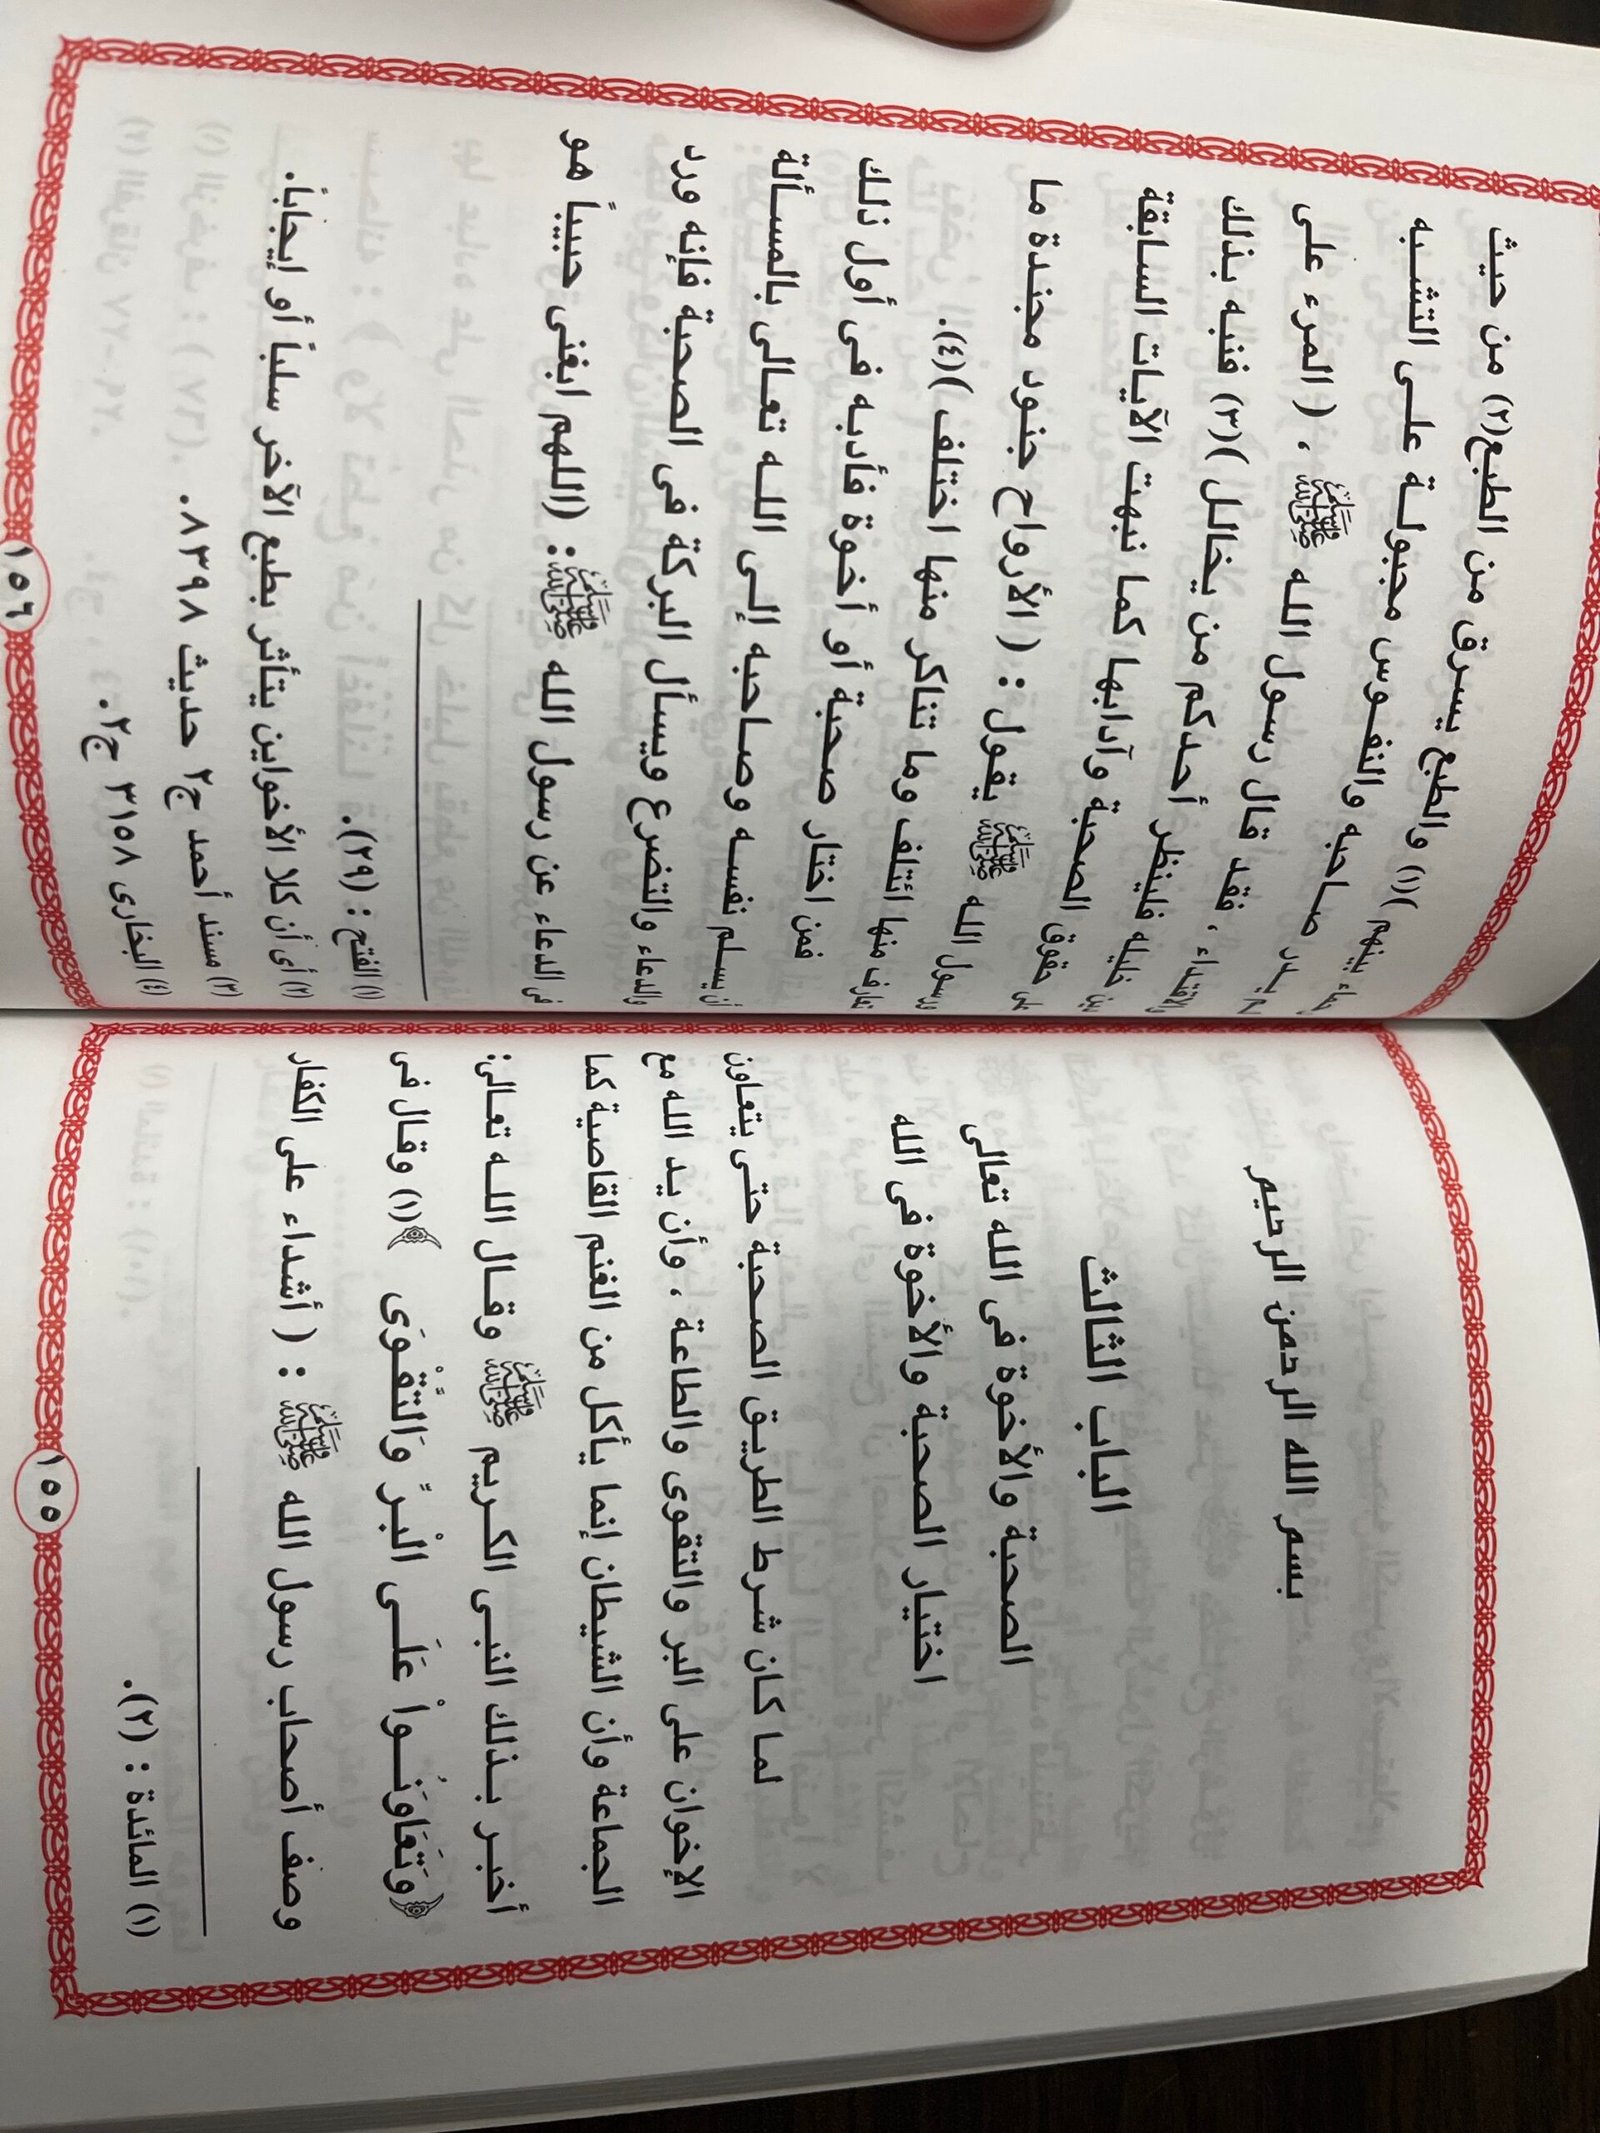 بسم الله الرحمن الرحيم
الباب الثالث
الصحبة والأخوة فى الله تعالى
اختيار الصحبة والأخوة فى الله
لما كان شرط الطريق الصحبة حتى يتعاون
الإخوان على البر والتقوى والطاعة ، وأن يد الله مع
الجماعة وأن الشيطان إنما يأكل من الغنم القاصية كما
أخبر بذلك النبى الكريم ﷺ وقال الله تعالى:
﴿وَتَعَاوَنُواْ عَلَى الْبرِّ وَالتَّقْوَى ﴾(١) وقال فى
وصف أصحاب رسول الله ﷺ : ( أشداء على الكفار
(١) المائدة : (٢).
١٥٥
رحماء بينهم )(١) والطبع يسرق من الطبع(٢) من حيث
لم يدر صاحبه والنفوس مجبولة على التشبه
والاقتداء ، فقد قال رسول الله ﷺ ، ( المرء على
دين خليله فلينظر أحدكم من يخالل )(٣) فنبه بذلك
على حقوق الصحبة وآدابها كما نبهت الآيات السابقة
ورسول الله ﷺ يقول : ( الأرواح جنود مجندة ما
تعارف منها ائتلف وما تناكر منها اختلف )(٤).
فمن اختار صحبة أو أخوة فأدبه فى أول ذلك
أن يسلم نفسه وصاحبه إلى الله تعالى بالمسألة
والدعاء والتضرع ويسأل البركة فى الصحبة فإنه ورد
فى الدعاء عن رسول الله ﷺ: (اللهم ابغنى حبيباً هو
(١) الفتح : (٢٩).
(٢) أى أن كلا الأخواين يتأثر بطبع الآخر سلباً أو إيجاباً.
(٣) مسند أحمد ج٢ حديث ٨٣٩٨.
(٤) البخارى ٣١٥٨ ج٢.
١٥٦